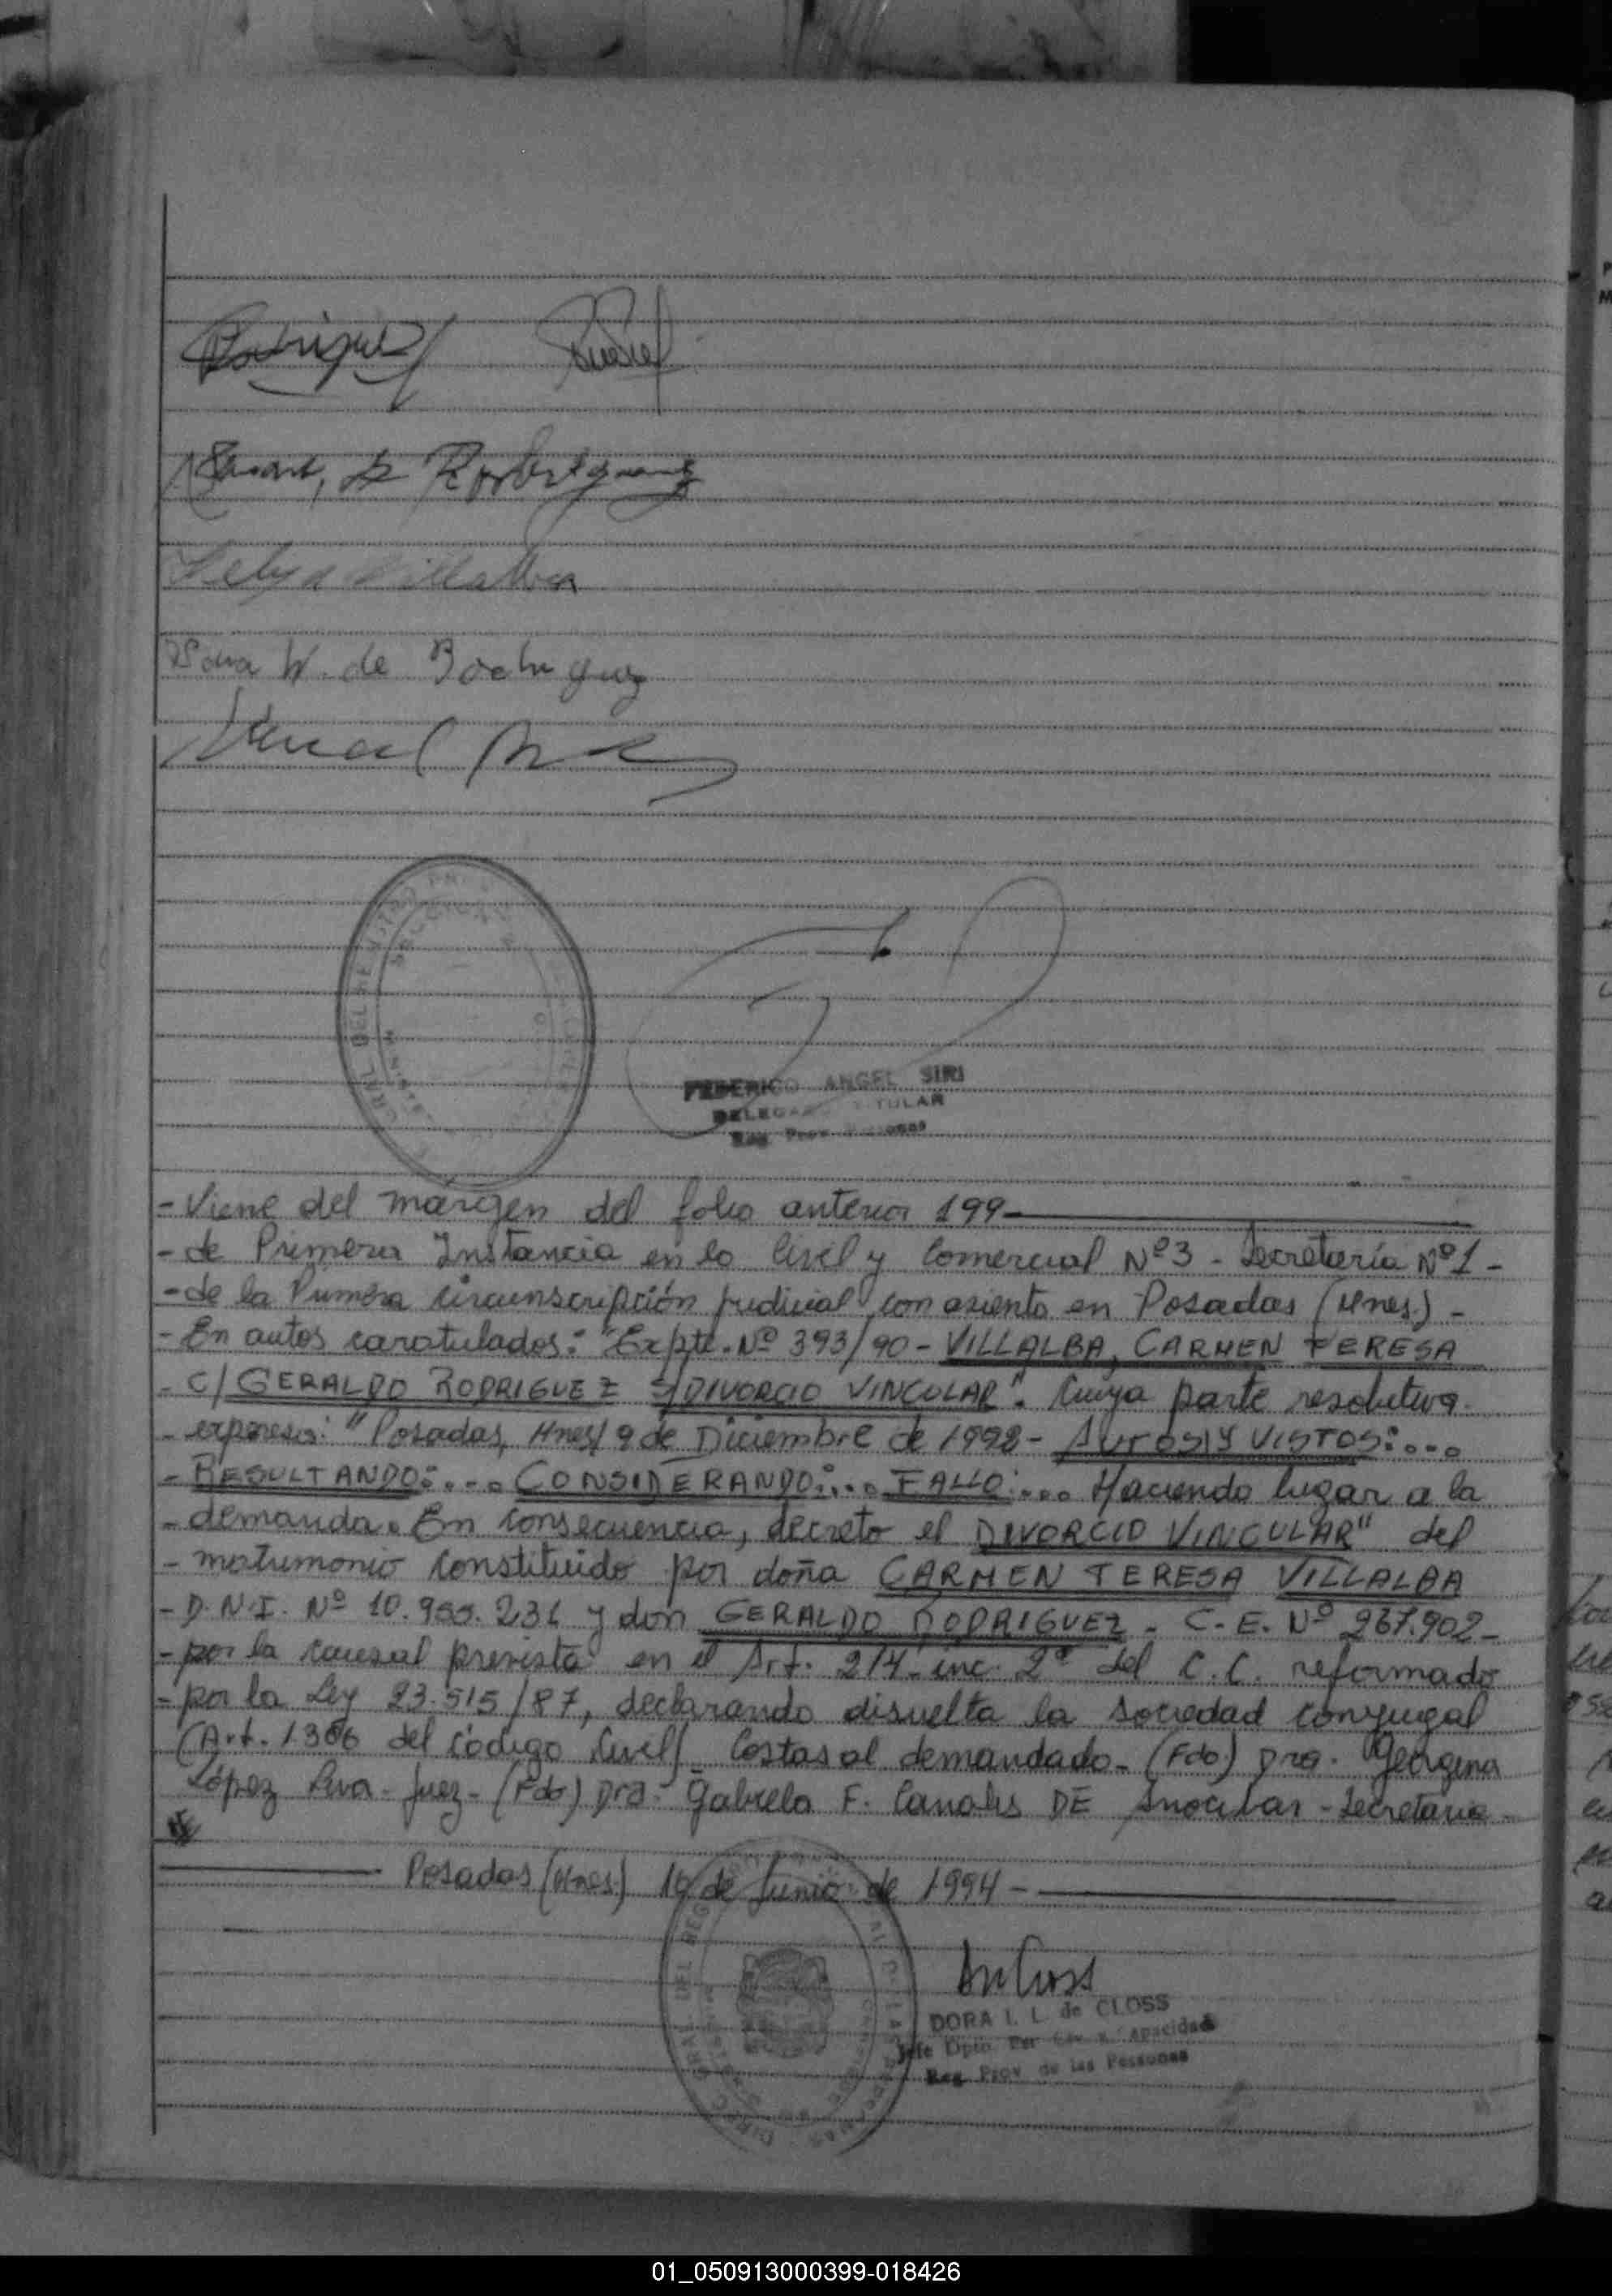 Rodriguez
de Rodriguez
Villalba
W. de Rodriguez
FEDERICO ANGEL SIRI
DELEGADO TITULAR
Reg. Prov. Personas
- Viene del márgen del folio anterior 199-
- de Primera Instancia en lo Civil y Comercial Nº3 - Secretaría Nº1 -
- de la Primera circunscripción judicial con asiento en Posadas (Mnes.) -
- En autos caratulados: "Expte. Nº 393/90 - VILLALBA, CARMEN TERESA
- C/ GERALDO RODRIGUEZ S/DIVORCIO VINCULAR". Cuya parte resolutiva
- expresa: "Posadas, Mnes/ 9 de Diciembre de 1992 - AUTOS Y VISTOS:...
- RESULTANDO:... CONSIDERANDO:... FALLO:... Haciendo lugar a la
- demanda. En consecuencia, decreto el DIVORCIO VINCULAR" del
- matrimonio constituido por doña CARMEN TERESA VILLALBA
- D.N.I. Nº 10.955.231 y don GERALDO RODRIGUEZ - C.E. Nº 267.902 -
- por la causal prevista en el Art. 214 inc. 2º del C.C. reformado
- por la Ley 23.515/87, declarando disuelta la sociedad conyugal
(Art. 1306 del código Civil) Costas al demandado - (Fdo.) Dra. Georgina
López Liva - Juez - (Fdo) Dra. Gabriela F. Canalis DE Anocibar - Secretaria -
Posadas (Mnes.) 10 de Junio de 1994 -
DORA I. L. de CLOSS
Jefe Dpto. Est. Civ. y Capacidad
Reg. Prov. de las Personas
01_050913000399-018426